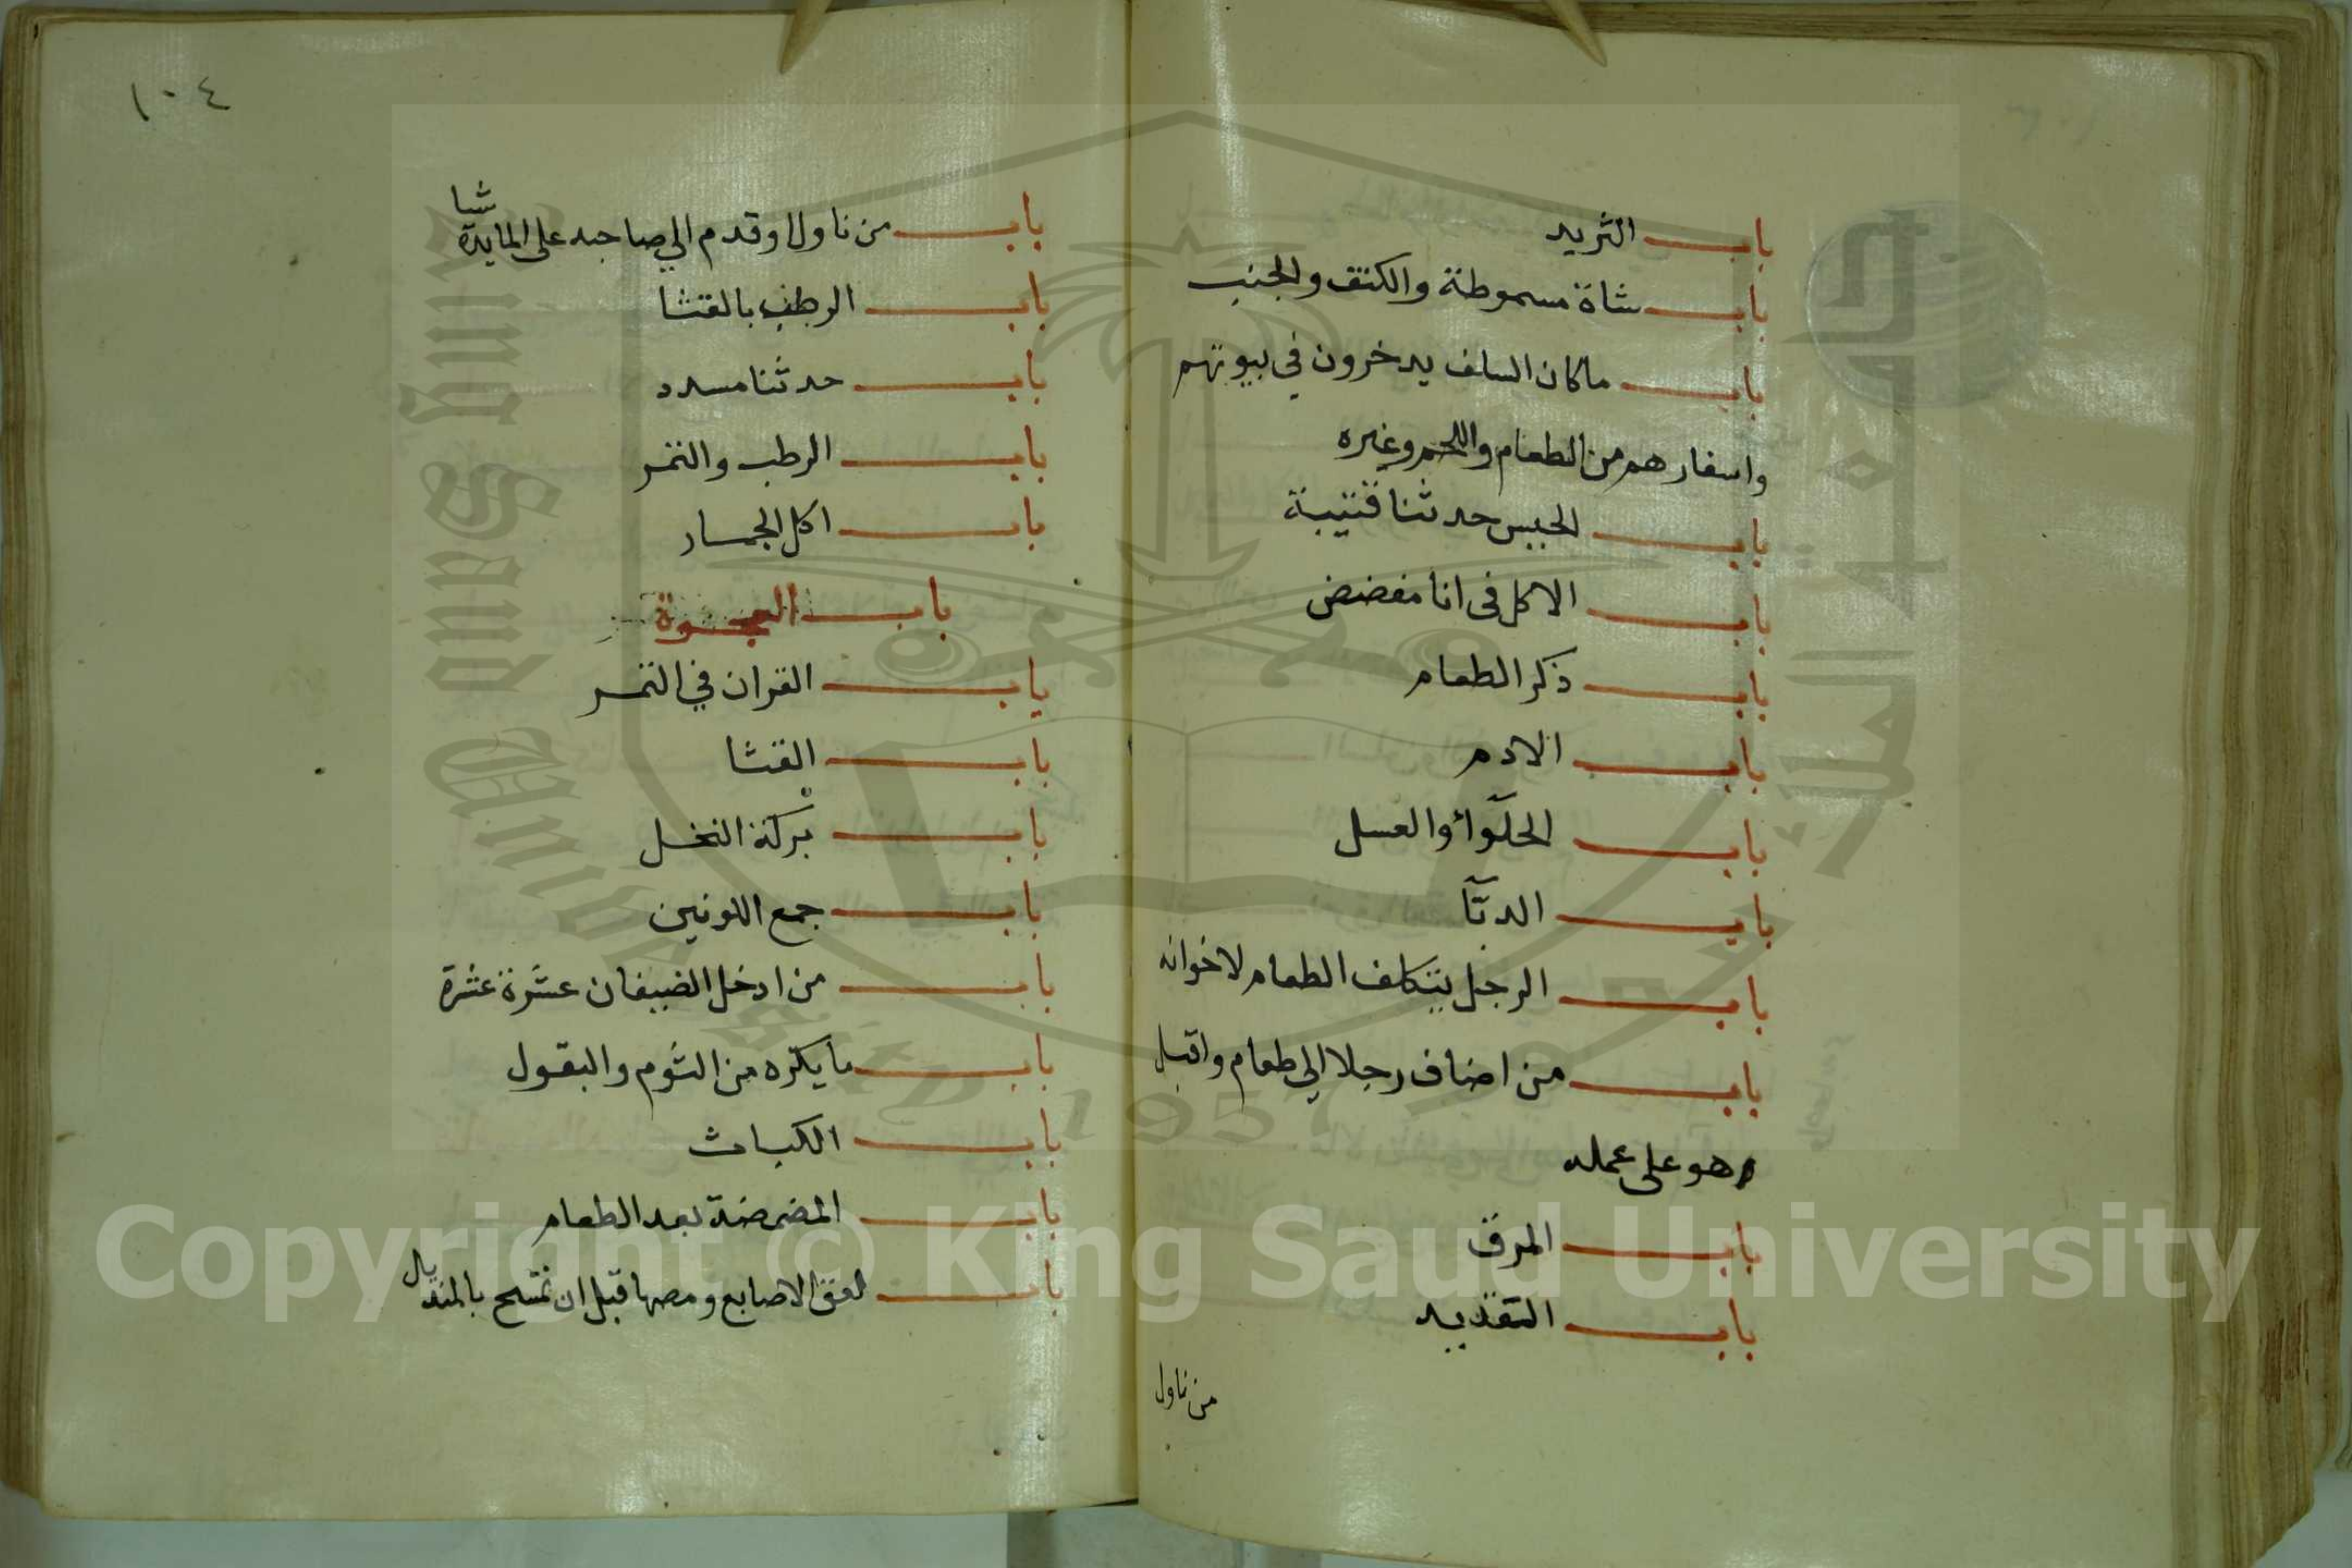 باب الثريد
باب شاة مسموطة والكتف والجنب
باب ماكان السلف يدخرون في بيوتهم
واسفارهم من الطعام واللحم وغيره
باب الحيس حدثنا قتيبة
باب الاكل فى انا مفضض
باب ذكر الطعام
باب الادم
باب الحلوآء والعسل
باب الدبآ
باب الرجل يتكلف الطعام لاخوانه
باب من اضاف رجلا الي طعام واقبل
هو على عمله
باب المرق
باب القديد
من ناول
١٠٤
باب من ناول او قدم الي صاحبه على المايدة شيا
باب الرطب بالقثا
باب حدثنا مسدد
باب الرطب والتمر
باب اكل الجمار
باب العجوة
باب القران في التمر
باب القثا
باب بركة النخل
باب جمع اللونين
باب من ادخل الضيفان عشرة عشرة
باب ما يكره من الثوم والبقول
باب الكباث
باب المضمضة بعد الطعام
باب لعق الاصابع ومصها قبل ان تمسح بالمنديل
Copyright © King Saud University
King Saud University
1957